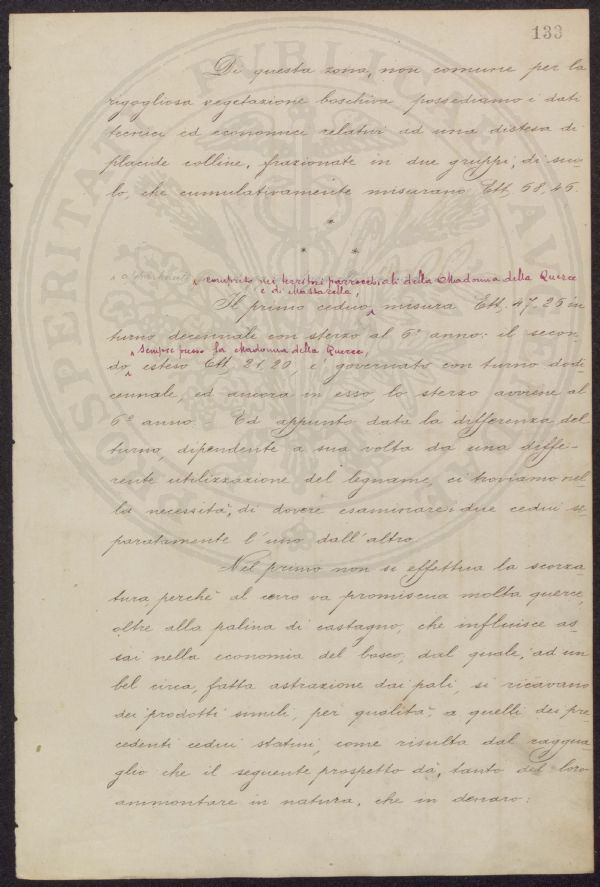 133
Di questa zona, non comune per la
rigogliosa vegetazione boschiva possediamo i dati
tecnici ed economici relativi ad una distesa di
placide colline, frazionate in due gruppi, di suo-
lo, che cumulativamente misurano Ett. 68,45.
* * *
compreso nei territori parrocchiali della Madonna della Querce
e di Massarella,
Il primo ceduo, misura Ett. 47.25 in
turno decennale con sterzo al 6° anno: il secon-
sempre presso la Madonna della Querce,
do, esteso Ett. 21,20, e' governato con turno dodi-
cennale, ed ancora in esso, lo sterzo avviene al
6° anno. Ed appunto data la differenza del
turno, dipendente a sua volta da una diffe-
rente utilizzazione del legname, ci troviamo nel-
la necessità, di dovere esaminare i due cedui se-
paratamente l'uno dall'altro.
Nel primo non si effettua la scorza-
tura perchè al cerro va promiscua molta querce,
oltre alla palina di castagno, che influisce as-
sai nella economia del bosco, dal quale, ad un
bel circa, fatta astrazione dai pali, si ricavano
dei prodotti simili, per qualità, a quelli dei pre-
cedenti cedui statini, come risulta dal raggua-
glio che il seguente prospetto dà, tanto del loro
ammontare in natura, che in denaro:
PROSPERITATI PVBLICAE